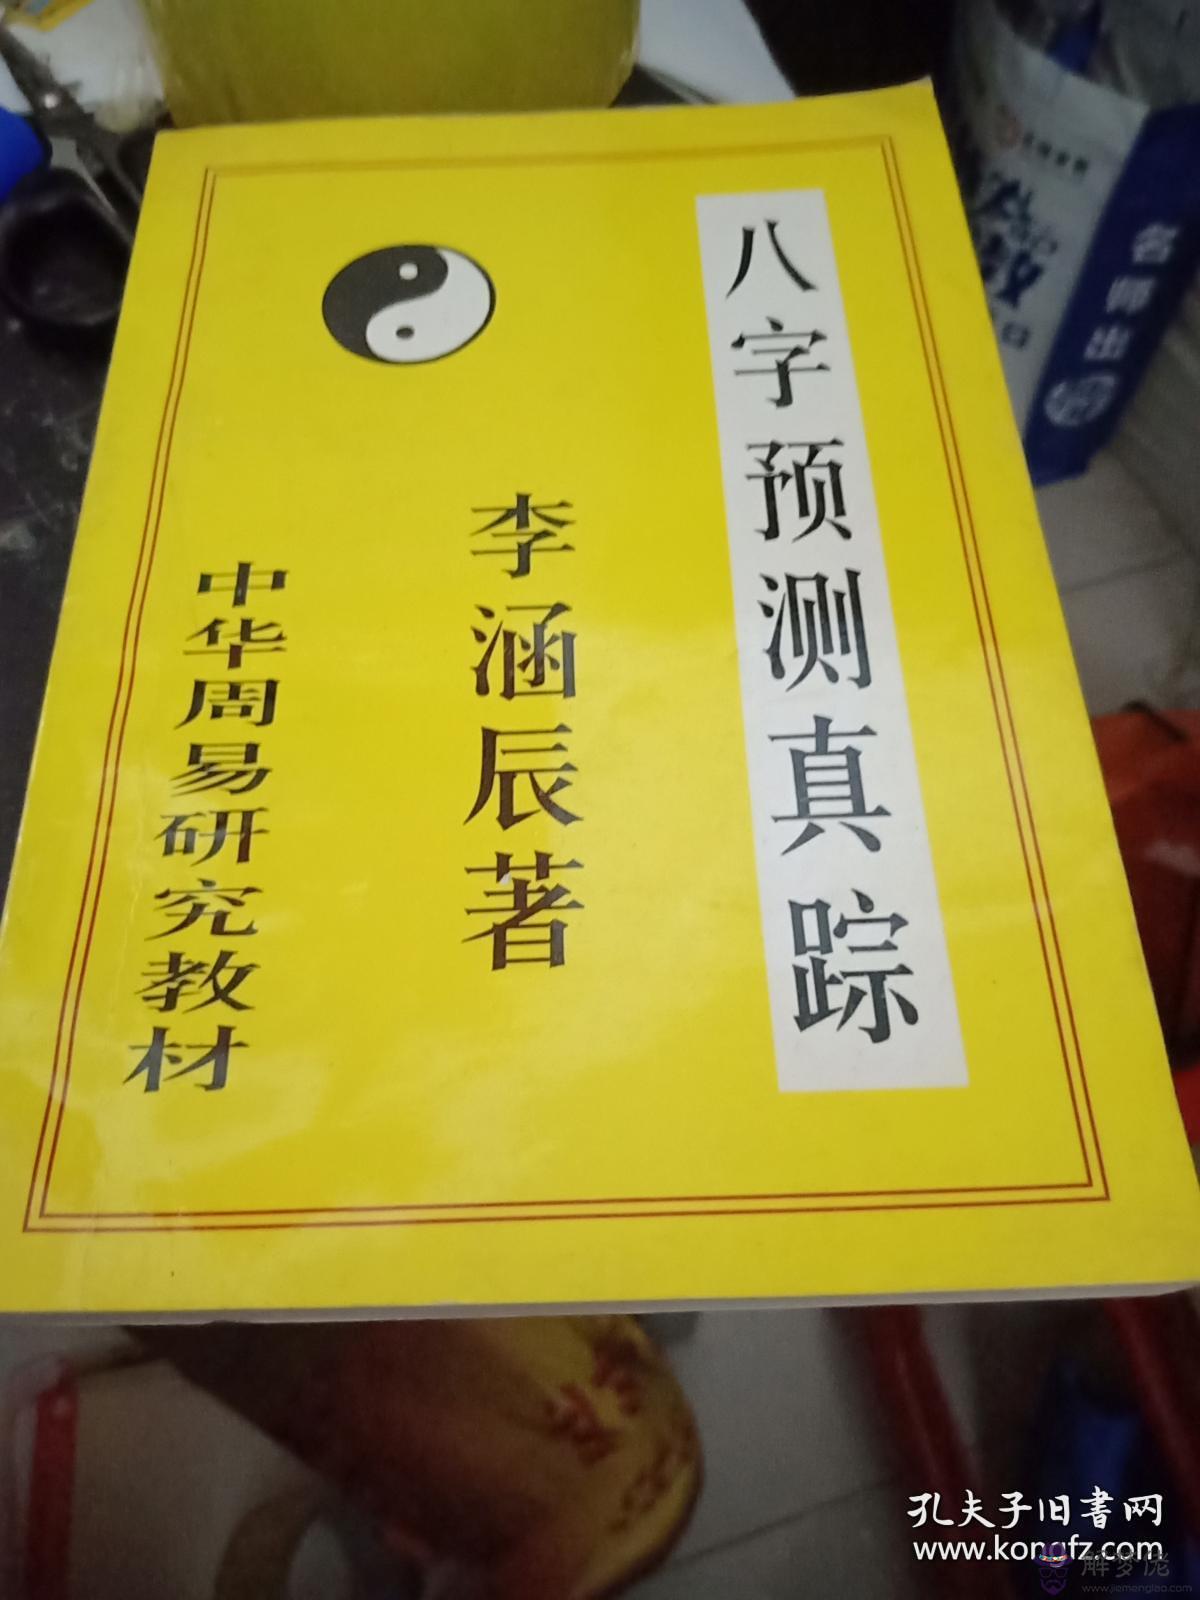 八字预测真踪
李涵辰著
中华周易研究教材
名师出
孔夫子旧書网
www.kongfz.com
解梦佬
www.jiemenglao.com